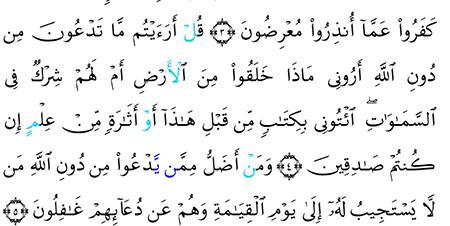 كَفَرُوا۟ عَمَّآ أُنذِرُوا۟ مُعْرِضُونَ ﴿٣﴾ قُلْ أَرَءَيْتُم مَّا تَدْعُونَ مِن
دُونِ ٱللَّهِ أَرُونِى مَاذَا خَلَقُوا۟ مِنَ ٱلْأَرْضِ أَمْ لَهُمْ شِرْكٌ فِى
ٱلسَّمَـٰوَٰتِ ۖ ٱئْتُونِى بِكِتَـٰبٍ مِّن قَبْلِ هَـٰذَآ أَوْ أَثَـٰرَةٍ مِّنْ عِلْمٍ إِن
كُنتُمْ صَـٰدِقِينَ ﴿٤﴾ وَمَنْ أَضَلُّ مِمَّن يَدْعُوا۟ مِن دُونِ ٱللَّهِ مَن
لَّا يَسْتَجِيبُ لَهُۥٓ إِلَىٰ يَوْمِ ٱلْقِيَـٰمَةِ وَهُمْ عَن دُعَآئِهِمْ غَـٰفِلُونَ ﴿٥﴾